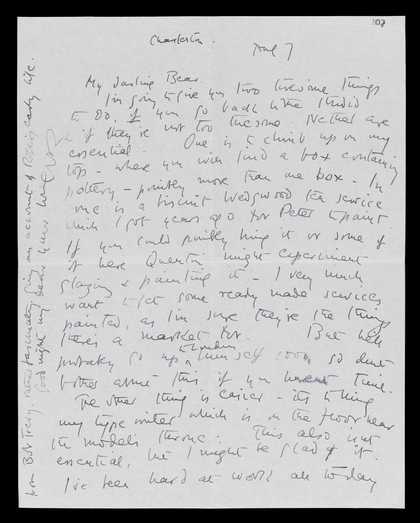 108
Charleston.
Aug 7
My darling Bear.
I'm going to give you two tiresome things
to do, if you go back to the studio
& if they're not too tiresome. Neither are
essential. One is to climb up on my
top - where you will find a box containing
pottery - possibly more than one box. In
one is a biscuit Wedgwood tea service
which I got years ago for Peter to paint
If you could possibly bring it or some of
it here Quentin might experiment
glazing & painting it - I very much
want to get some ready made services
painted, as I'm sure they're the things
there's a market for. But he'll
probably go up to London himself soon so don't
bother about this if you haven't time.
The other thing is easier - it's to bring
my typewriter which is on the floor near
the models throne. This also isn't
essential, but I might be glad of it.
I've been hard at work all today
from Bob Trevy, rather fascinating giving an account of Roger's early life.
Good night my dear